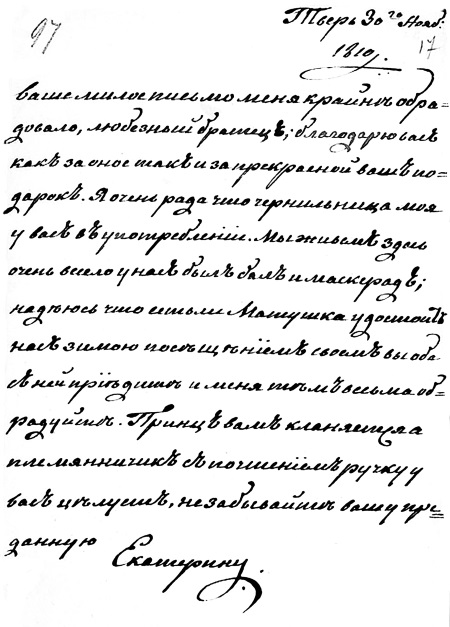 97
Тверь 30го Нояб:
17
1810.
ваше милое письмо меня крайнѣ обра=
довало, любезный братецъ; благодарю васъ
какъ за оное такъ и за прекрасной вашъ по=
дарокъ. Я очень рада что чернильница моя
у васъ въ употребленіи. Мы живемъ здѣсь
очень весело у насъ былъ балъ и маскурадъ;
надѣюсь что естьли Матушка удостоитъ
насъ зимою посѣщѣніемъ своемъ вы оба
съ ней пріѣдитѣ и меня тѣмъ весьма об=
радуйтѣ. Принцъ вамъ кланяется а
племянничикъ съ почтеніемъ ручку у
васъ цѣлуетъ, не забывайтѣ вашу пре=
данную
Екатерину.